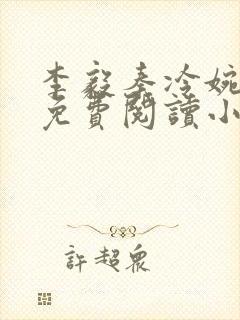 李毅秦冷婉
免費閱讀小
許超眾